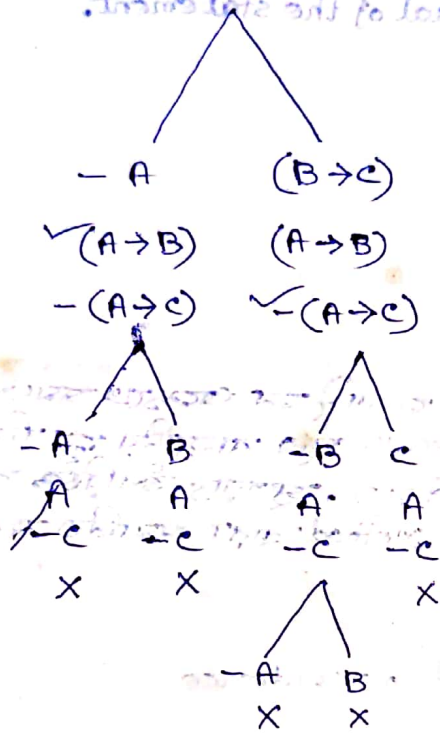 - A (B→C)
✓(A→B) (A→B)
-(A→C) ✓-(A→C)
-A B -B C
A A A A
-C -C -C -C
X X X
-A B
X X